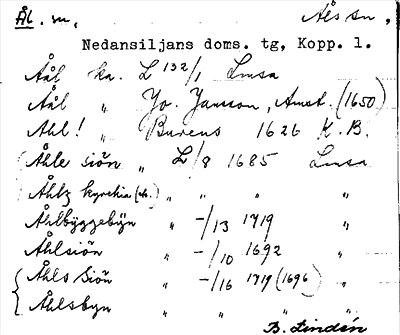 Ål. sn, Åls sn,
Nedansiljans doms. tg, Kopp. l.
Åål ka. L 132/1 Lmsa
Åål " Jo. Jansson, Amst. (1650)
Ahl! " Bureus 1626 K.B.
(Åhle siön " L/8 1685 Lmsa
Åhlz kyrckia (ch.) " " " "
Åhlbyggebÿn " -/13 1719 "
Åhlsiön " -/10 1692 "
Åhls Siön " -/16 1719 (1696) "
Åhlsbyn " " " "
B. Lindén